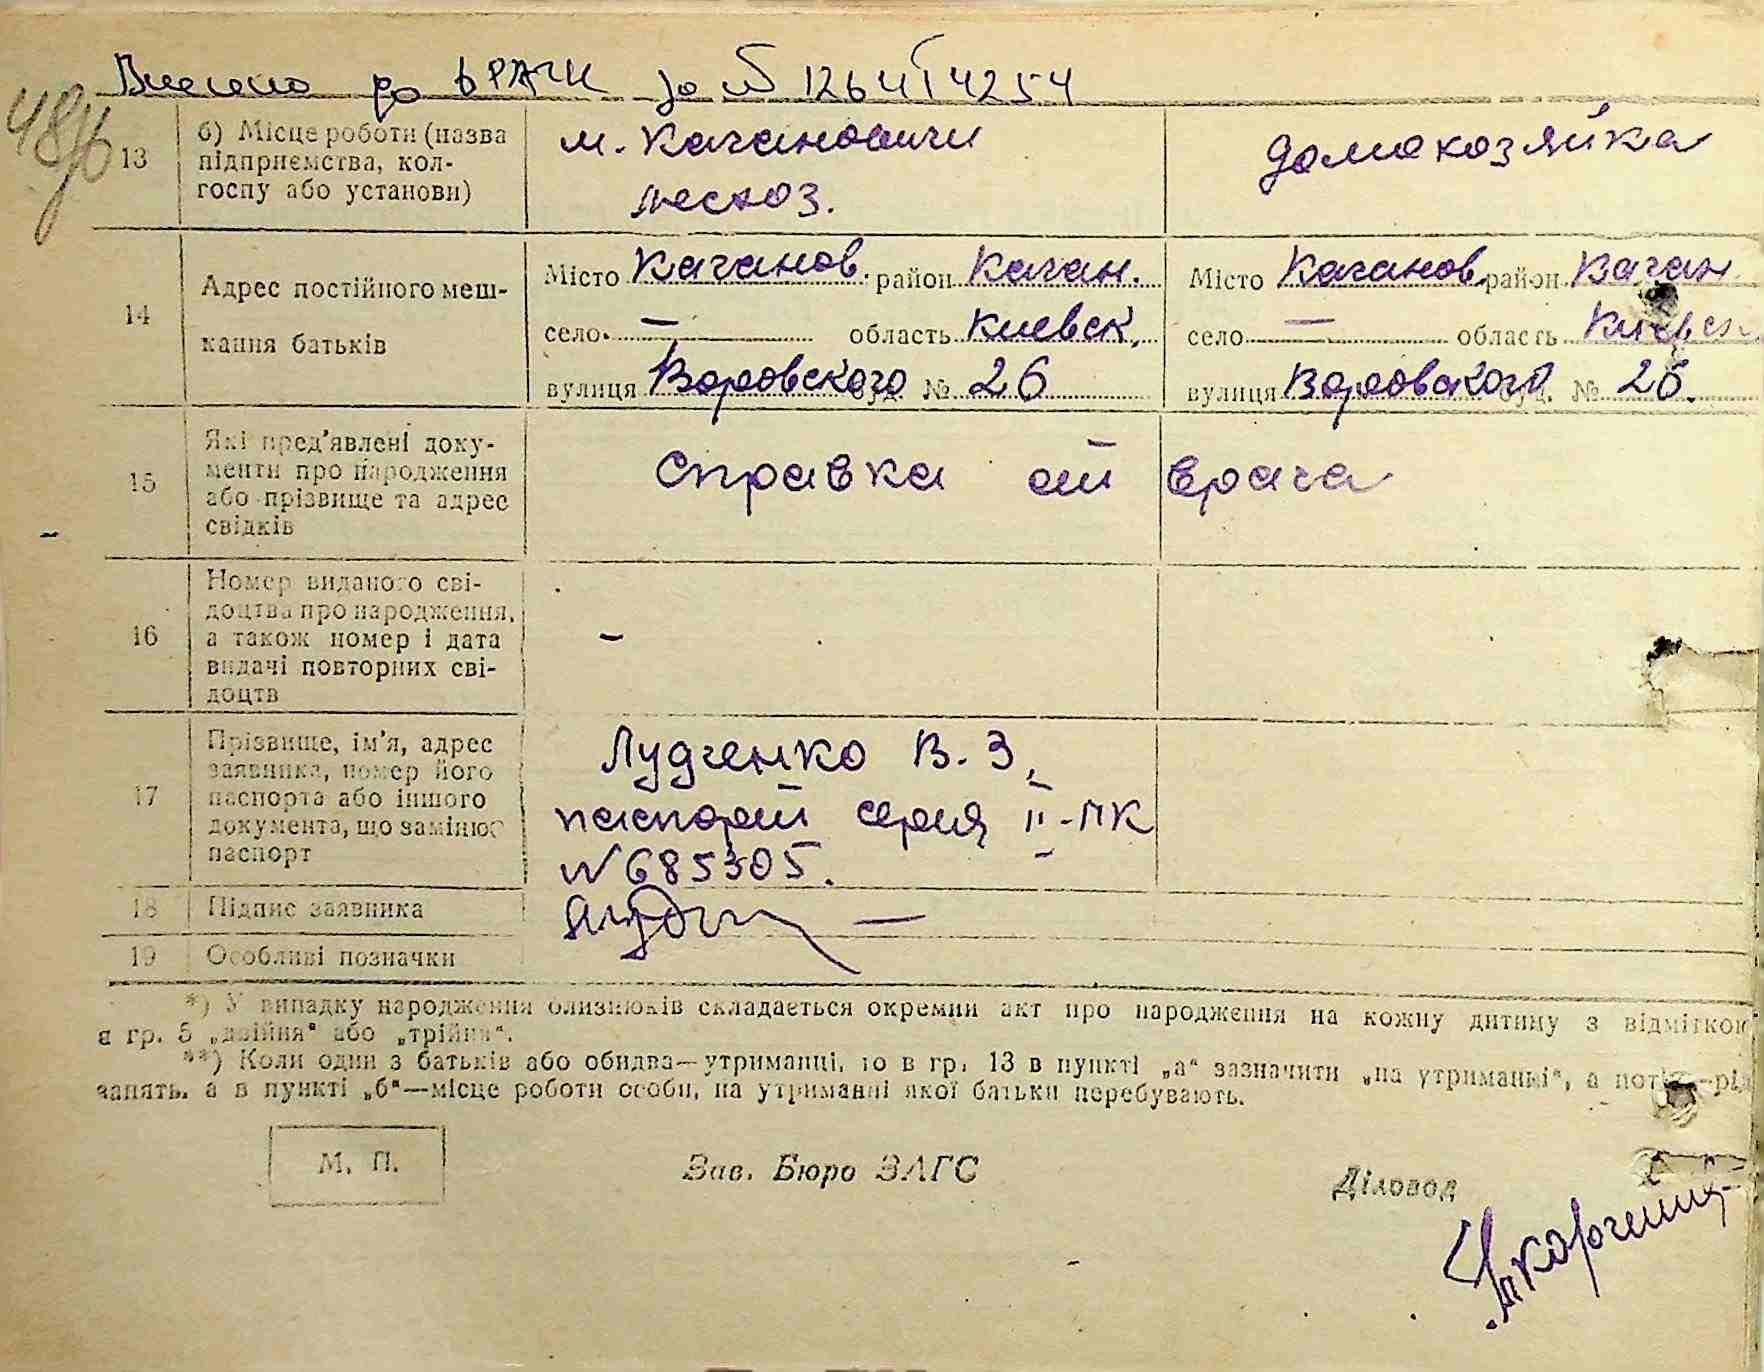 Внесено до ДРАЦС за № 12641 4254
48
13
б) Місце роботи (назва
підприємства, кол-
госпу або установи)
м. Качановичи
лесхоз.
домохозяйка
14
Адрес постійного меш-
кання батьків
Місто Каганов. район Каган.
село — область Киевск.
вулиця Воровского буд. № 26
Місто Каганов. район Каган
село — область Киевск
вулиця Воровского буд. № 26.
15
Які пред'явлені доку-
менти про народження
або прізвище та адрес
свідків
Справка от врача
16
Номер виданого сві-
доцтва про народження,
а також номер і дата
видачі повторних сві-
доцтв
–
17
Прізвище, ім'я, адрес
заявника, номер його
паспорта або іншого
документа, що замінює
паспорт
Лудченко В. З.
паспорт серия II-ПК
№ 685305.
18
Підпис заявника
—
19
Особливі позначки
*) У випадку народження близнюків складається окремий акт про народження на кожну дитину з відміткою
в гр. 5 „двійня“ або „трійня“.
**) Коли один з батьків або обидва—утриманці, то в гр. 13 в пункті „а“ зазначити „на утриманні“, а потім—рід
занять, а в пункті „б“—місце роботи особи, на утриманні якої батьки перебувають.
М. П.
Зав. Бюро ЗАГС
Діловод